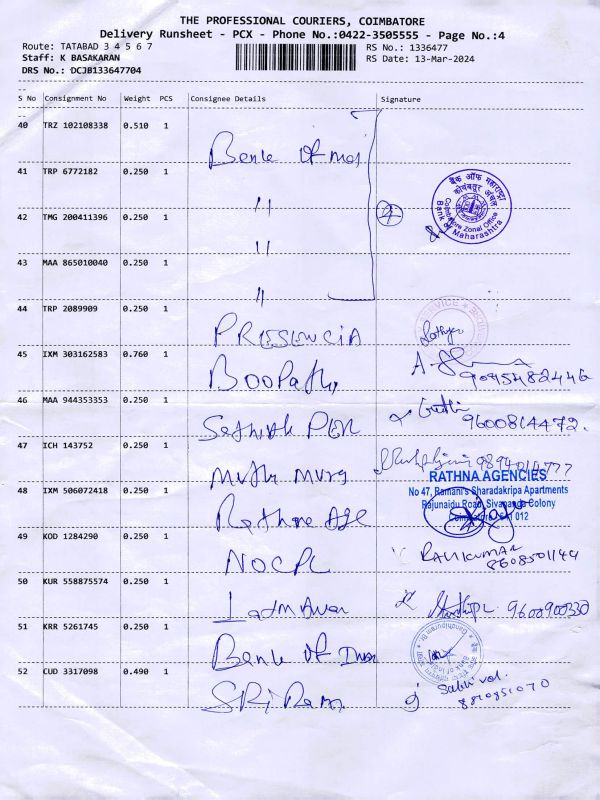 THE PROFESSIONAL COURIERS, COIMBATORE
Delivery Runsheet - PCX - Phone No.:0422-3505555 - Page No.:4
Route: TATABAD 3 4 5 6 7
RS No.: 1336477
Staff: K BASAKARAN
RS Date: 13-Mar-2024
DRS No.: DCJB133647704
S No Consignment No Weight PCS Consignee Details Signature
40 TRZ 102108338 0.510 1
Bank of
41 TRP 6772182 0.250 1
"
बैंक ऑफ महाराष्ट्र
कोयंबतूर अंचल
Coimbatore Zonal Office
Bank of Maharashtra
42 TMG 200411396 0.250 1
"
4
43 MAA 865010040 0.250 1
"
44 TRP 2089909 0.250 1
PRESENCIA
SERVICE
45 IXM 303162583 0.760 1
Boopathy
46 MAA 944353353 0.250 1
9600814472.
47 ICH 143752 0.250 1
Muthu Murg
48 IXM 506072418 0.250 1
Rathna Age
RATHNA AGENCIES
No 47, Ramani's Sharadakripa Apartments
Rajunaidu Road, Sivananda Colony
Coimbatore - 641 012
49 KOD 1284290 0.250 1
NOCPL
RAVIKUMAR
50 KUR 558875574 0.250 1
9600900330
51 KRR 5261745 0.250 1
Bank of
Bank of India
52 CUD 3317098 0.490 1
SRi Ram